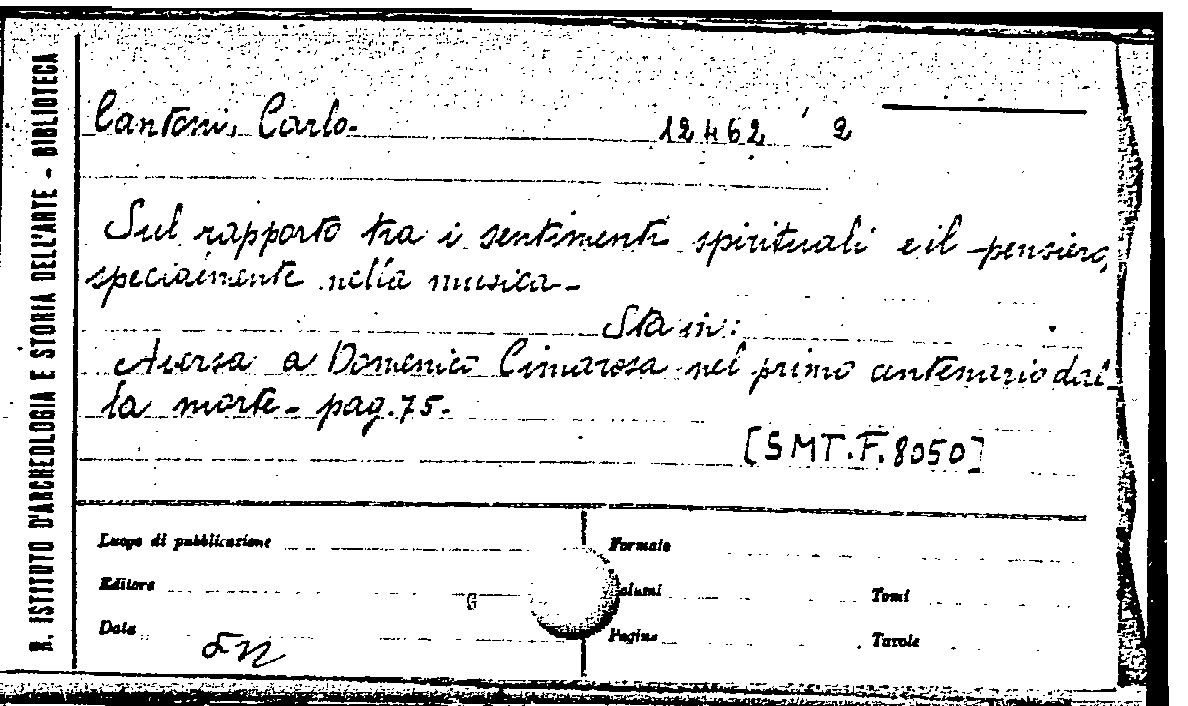 R. ISTITUTO D'ARCHEOLOGIA E STORIA DELL'ARTE - BIBLIOTECA
Cantoni, Carlo. 12462 2
Sul rapporto tra i sentimenti spirituali e il pensiero,
specialmente nella musica-
Sta in:
Aversa a Domenico Cimarosa nel primo centenario dal-
la morte- pag.75.
[SMT.F.8050]
Luogo di pubblicazione
Formato
Editore
Volumi
Tomi
Data
Pagine
Tavole